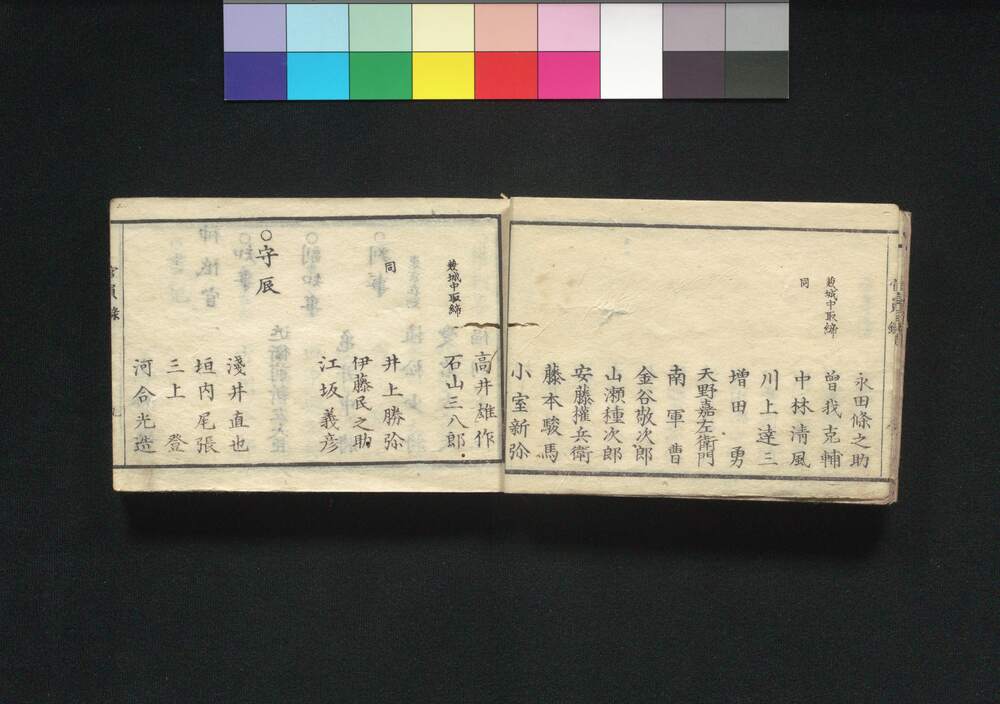 永田條之助
兼城中取締
曽我克輔
同
中林清風
川上達三
増田勇
天野嘉左衛門
南軍曹
金谷敬次郎
山瀬種次郎
安藤權兵衛
藤本駿馬
小室新弥
高井雄作
兼城中取締
石山三八郎
同
井上勝弥
伊藤民之助
江坂義彦
○守辰
淺井直也
垣内尾張
三上登
河合光造
官員録